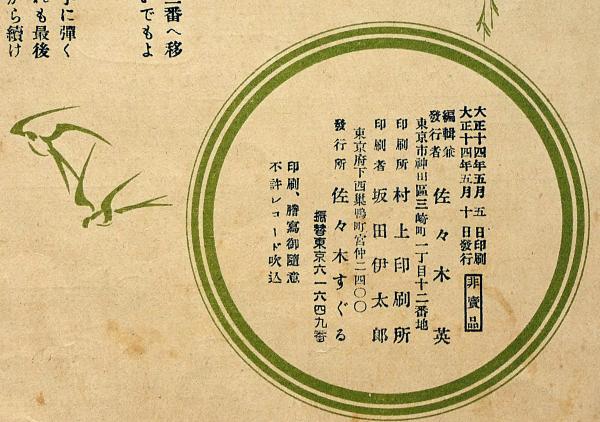 二番へ移
いでもよ
手に彈く
れも最後
から續け
大正十四年五月五日印刷
大正十四年五月十日發行
非賣品
編輯兼發行者 佐々木英
東京市神田區三崎町一丁目十二番地
印刷所 村上印刷所
印刷者 坂田伊太郎
東京府下西巣鴨町宮仲二四〇〇
發行所 佐々木すぐる
振替東京六一六四九番
印刷、謄寫御隨意
不許レコード吹込